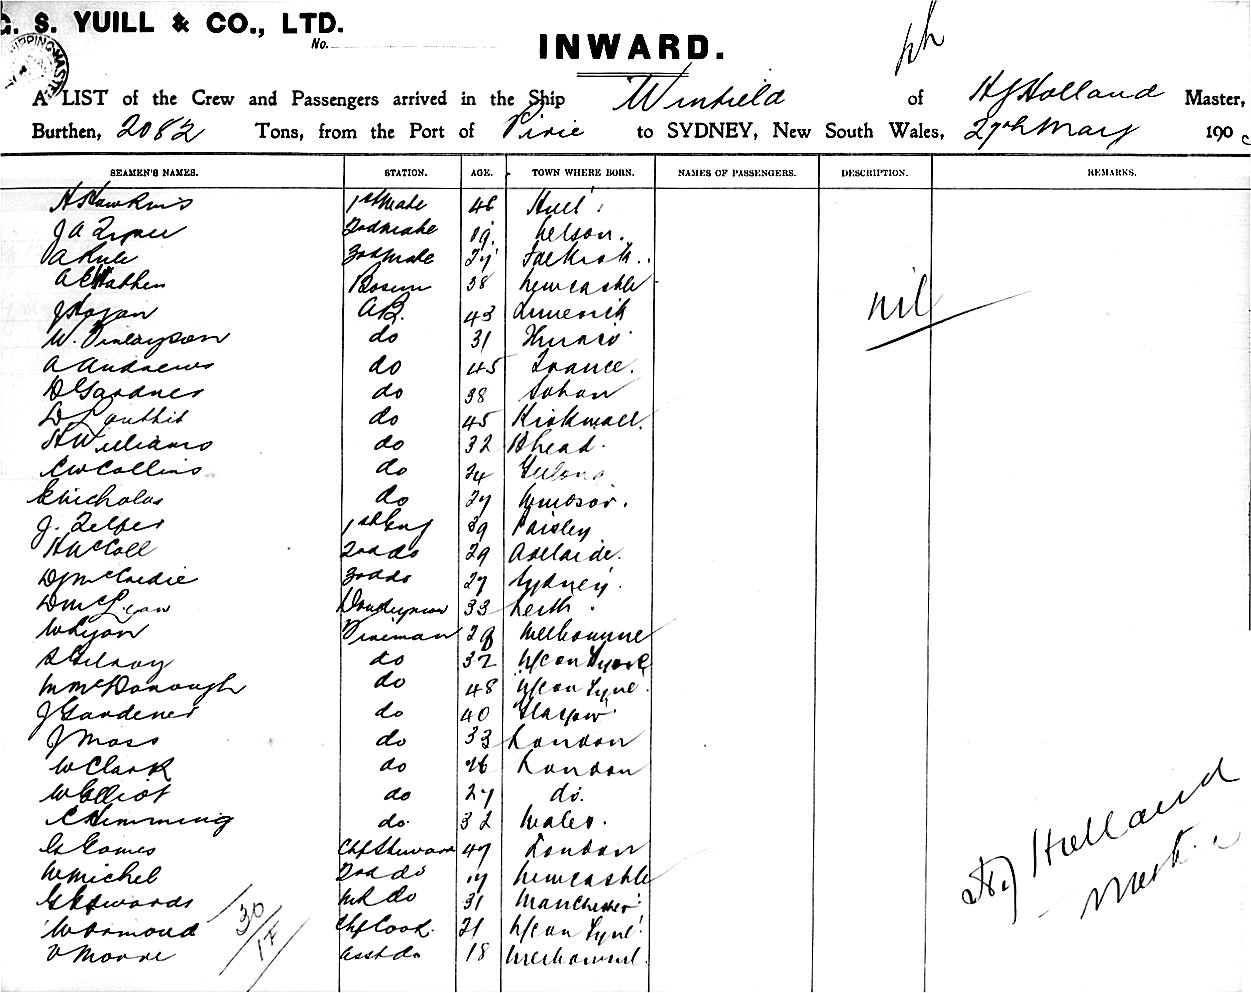 G. S. YUILL & CO., LTD.
No.
INWARD.
A LIST of the Crew and Passengers arrived in the Ship Winfield of HJHolland Master,
Burthen, 2082 Tons, from the Port of Pirie to SYDNEY, New South Wales, 27th May 190
SEAMEN'S NAMES. STATION. AGE. TOWN WHERE BORN. NAMES OF PASSENGERS. DESCRIPTION. REMARKS.
H Hawkins 1st Mate 46 Hull
J A 2nd mate 19 Nelson.
A Rule 3rd Mate 27 Falkirk.
Bosun 38 Newcastle
nil
J Hogan A.B. 43 Limerick
W. Finlayson do 31
A Andrews do 45 France.
D Gardner do 38
D Louthit do 45 Kirkwall.
H Williams do 32 B head.
C W Collins do 24 Geelong
E Nicholas do 27 Windsor.
J. Telfer 1st Eng 39 Paisley
H McColl 2nd do 29 Adelaide.
D J McCardie 3rd do 27 Sydney.
D McLean Donkeyman 33 Leith.
W Lyon Fireman 29 Melbourne
S Gilroy do 32 N/C on Tyne
M McDonough do 48 N/C on Tyne
J Gardener do 40 Glasgow
J Moss do 33 London
W Clark do 26 London
W Elliot do 27 do.
C Hemming do. 32 Wales.
G Eames Chf Steward 49 London
W Michel 2nd do 17 Newcastle
G Edwards M R do 31 Manchester
W Ormond Chf Cook. 21 N/C on Tyne
V Moore asst do 18
30
17
HJ Holland
Master